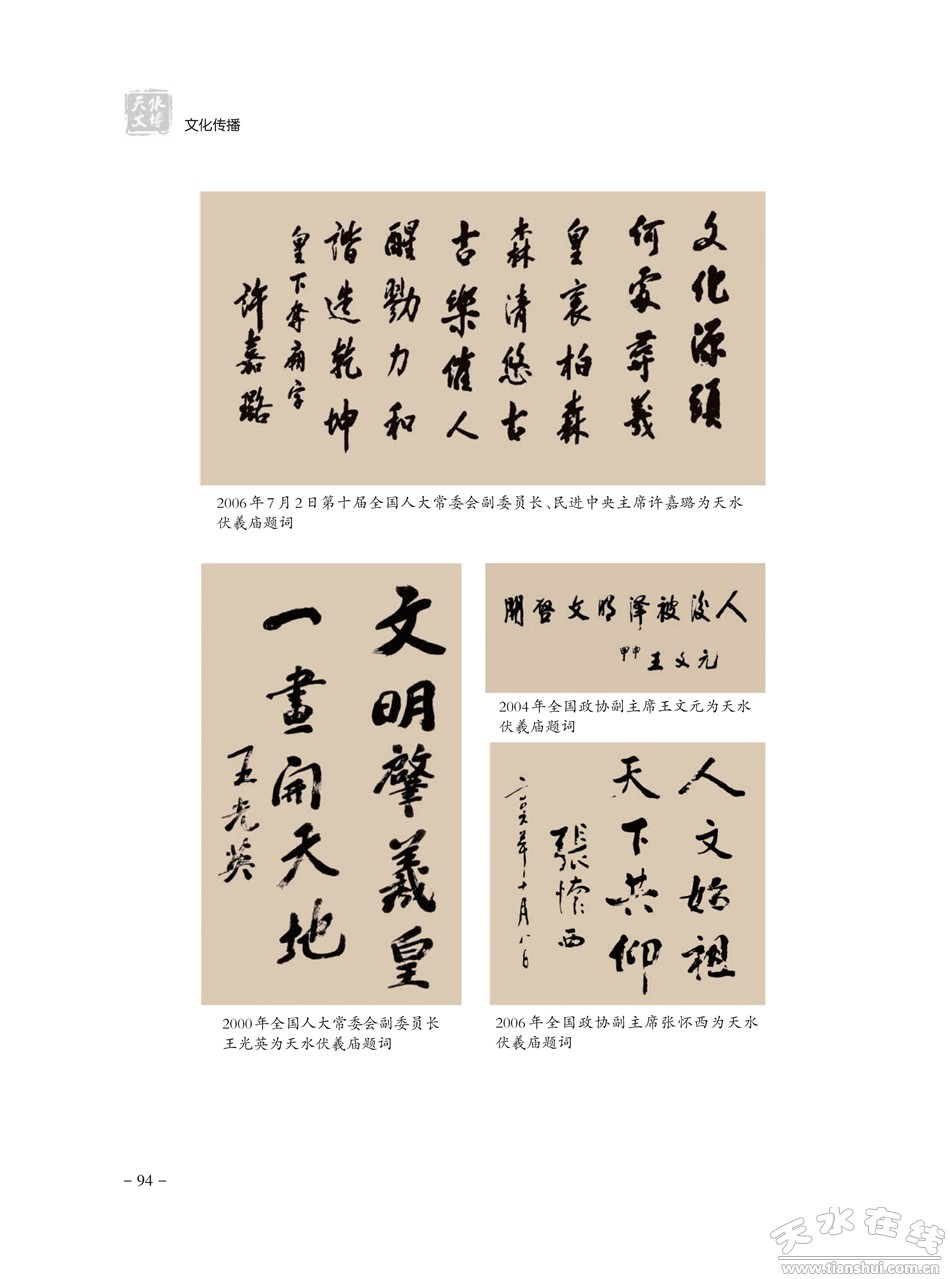 天水
文博
文化传播
文化源頭
何處尋羲
皇裏柏森
森清悠古
古樂催人
醒勠力和
諧造乾坤
皇下奪廟字
许嘉璐
2006年7月2日第十届全国人大常委会副委员长、民进中央主席许嘉璐为天水
伏羲庙题词
文明肇羲皇
一畫开天地
王光英
2000年全国人大常委会副委员长
王光英为天水伏羲庙题词
開啓文明泽被後人
甲申 王文元
2004年全国政协副主席王文元为天水
伏羲庙题词
人文始祖
天下共仰
張懷西
二〇〇六年十月八日
2006年全国政协副主席张怀西为天水
伏羲庙题词
- 94 -
天水在线
www.tianshui.com.cn